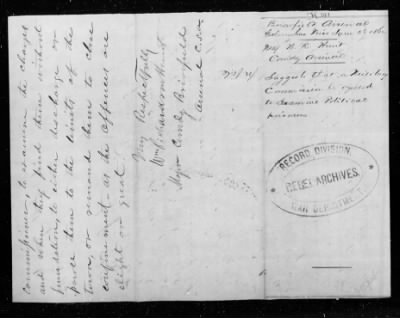 commissioner, to examine the charges
and when they find them without
foundation, to either discharge or
parole them to the limits of the
town, or remand them to close
confinement – as the offences are
slight or great.
Very Respectfully
Wm Richardson Hunt
Major Comdg Briarfield
Arsenal C.S.A.
Briarfield Arsenal
Columbus Miss June
Maj W. R. Hunt
Comdg Arsenal
Suggests that a Military
Commission be ordered
to Examine Political
prisoners
RECORD DIVISION
REBEL ARCHIVES
WAR DEPARTMENT